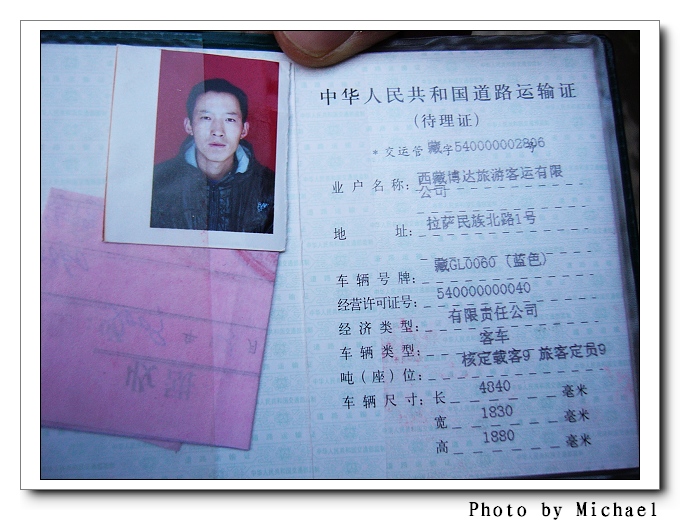 中华人民共和国道路运输证
(待理证)
*交运管 藏字540000002896号
业户名称: 西藏博达旅游客运有限
公司
地 址: 拉萨民族北路1号
车辆号牌: 藏GL0060 (蓝色)
经营许可证号: 540000000040
经济类型: 有限责任公司
车辆类型: 客车
吨(座)位: 核定载客9 旅客定员9
车辆尺寸: 长 4840 毫米
宽 1830 毫米
高 1880 毫米
Photo by Michael